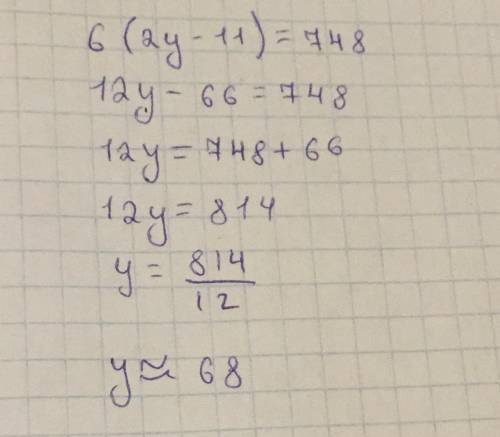 6 (2y - 11) = 748
12y - 66 = 748
12y = 748 + 66
12y = 814
y = 814/12
y ≈ 68